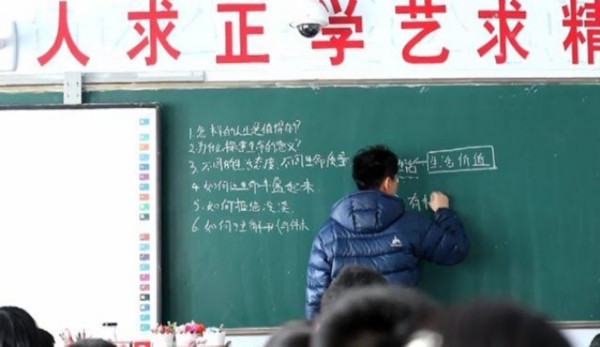 人求正学艺求精
1.怎样的人生是值得的?
2.为什么探寻生命的意义?
3.不同的生活态度,不同生命质量
4.如何让生命丰盈起来
5.如何拒绝冷漠
6.如何
活
生命价值
有